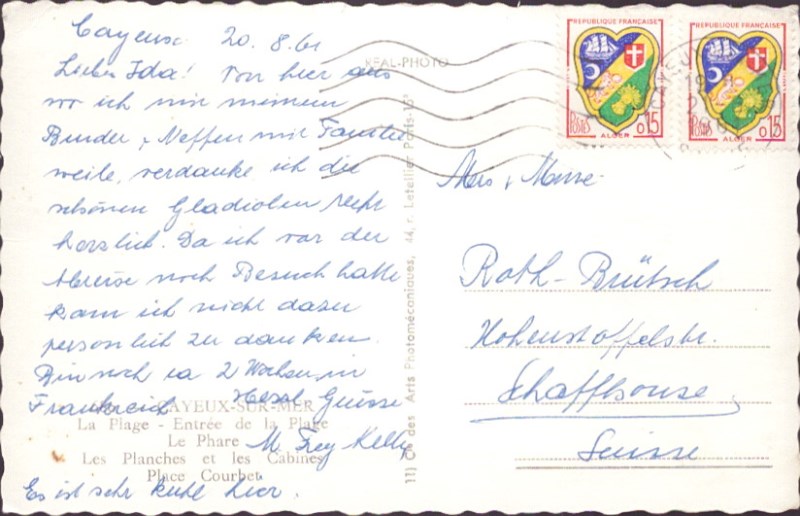 Cayeux 20.8.61
Liebe Ida! Von hier aus
wo ich mit meinem
Bruder + Neffen mit Familie
weile, verdanke ich die
schönen Gladiolen recht
herzlich. Da ich vor der
Abreise noch Besuch hatte
kam ich nicht dazu
persönlich zu danken.
Bin noch ca 2 Wochen in
Frankreich Herzl Grüsse
M Frey Kelly
Es ist sehr kühl hier.
CAYEUX-SUR-MER
La Plage - Entrée de la Plage
Le Phare
Les Planches et les Cabines
Place Courbet
REAL-PHOTO
des Arts Photomécaniques, 44, r. Letellier Paris-15e
REPUBLIQUE FRANÇAISE
POSTES 0,15
ALGER
REPUBLIQUE FRANÇAISE
POSTES 0,15
ALGER
Roth-Brütsch
Hohenstoffelstr.
Schaffhouse
Suisse